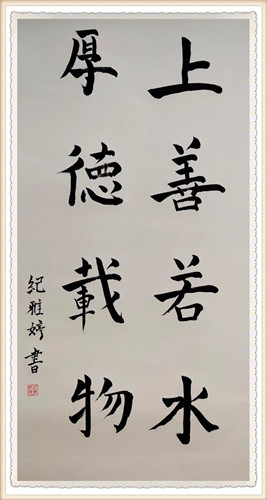 上善若水
厚德載物
紀雅婷書